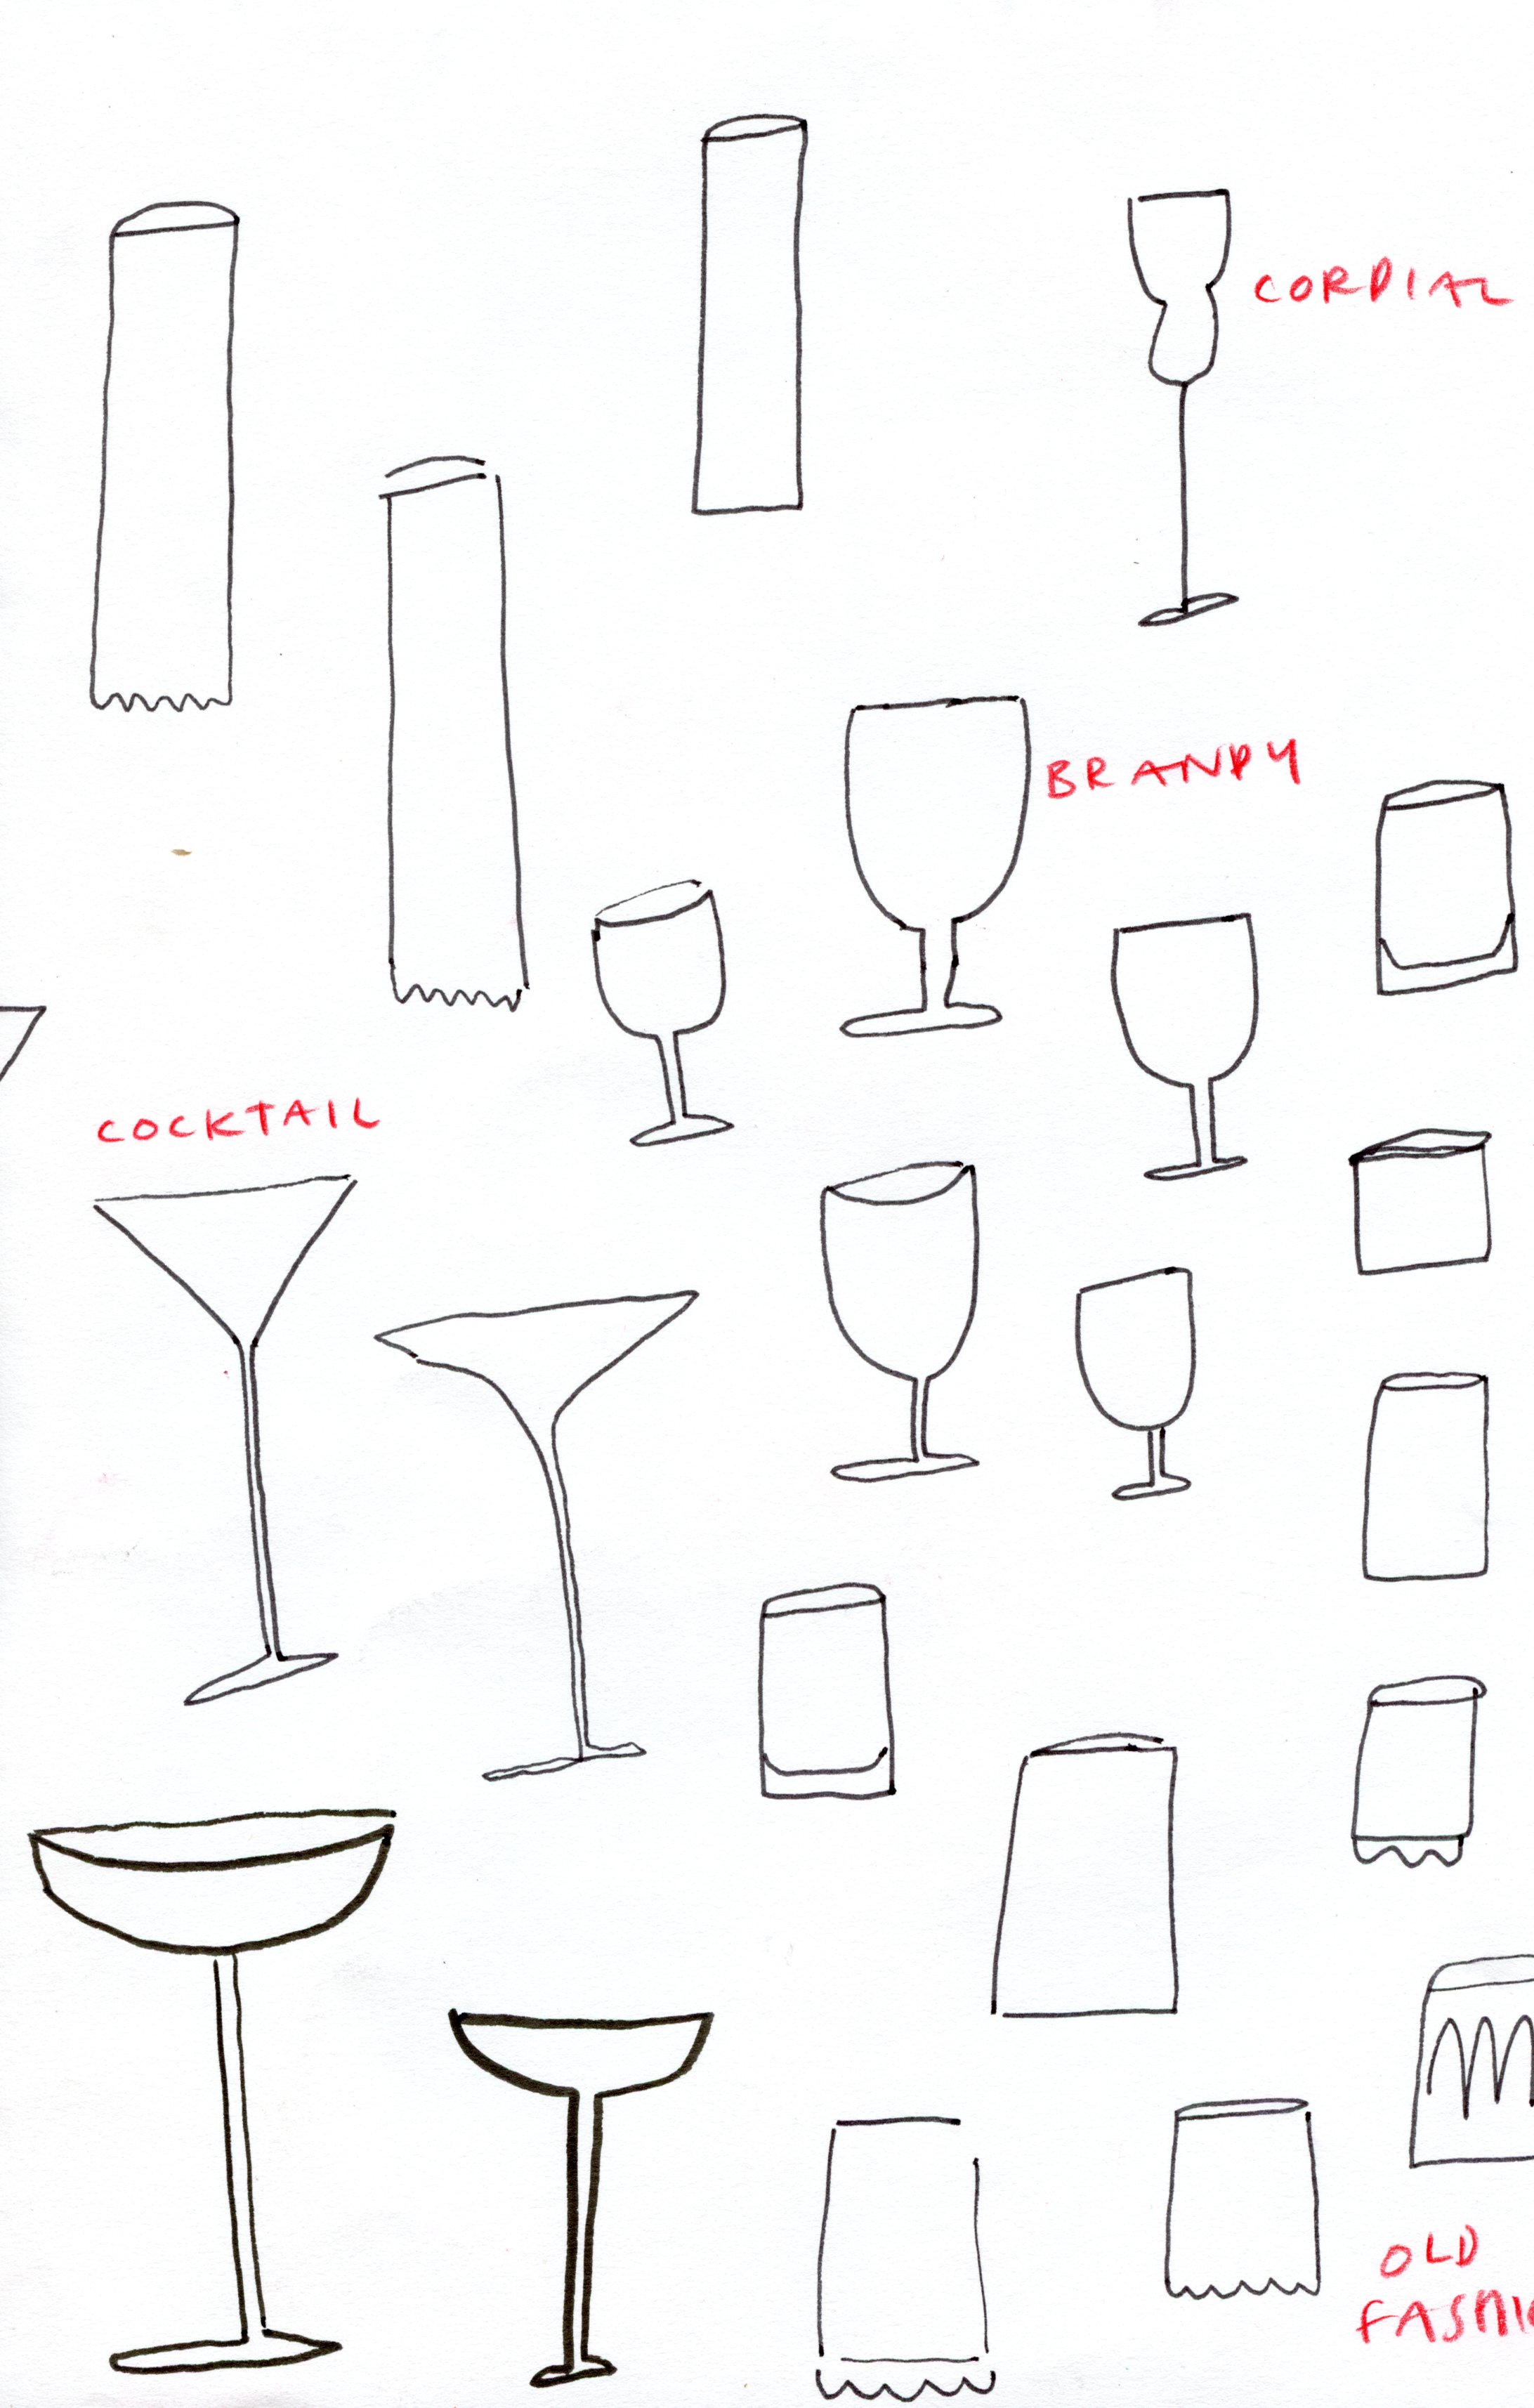 CORDIAL
BRANDY
COCKTAIL
OLD